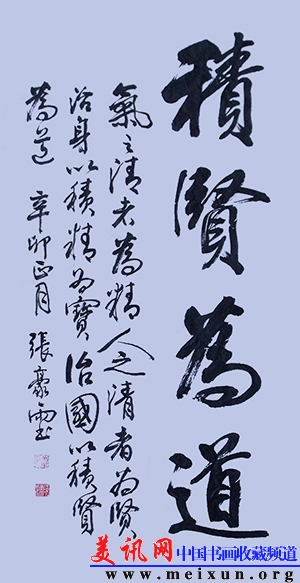 積賢為道
氣之清者為精人之清者為賢
治身以積精為寶治國以積賢
為道 辛卯正月 張豪雲
美讯网 中国书画收藏频道
www.meixun.org